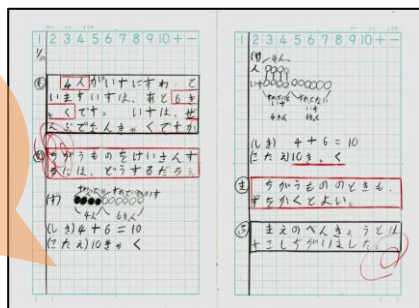 1 2 3 4 5 6 7 8 9 10 + −
1/20
も 4人がいすにすわって
いますいすは、あと6き
ゃくです。 いすは、ぜ
んぶでなんきゃくですか
め ちがうものをけいさんす
るには、どうするだろう
(ず)
4人 6きゃく
(しき) 4+6=10
(こたえ)10きゃく
1 2 3 4 5 6 7 8 9 10 + −
(ず) 4人
人
いす
4きゃく 6きゃく
(しき) 4+6=10
(こたえ)10きゃく
ま ちがうもののときも、
ずをかくとよい。
ふ まえのべんきょうとは
すこしちがいました。